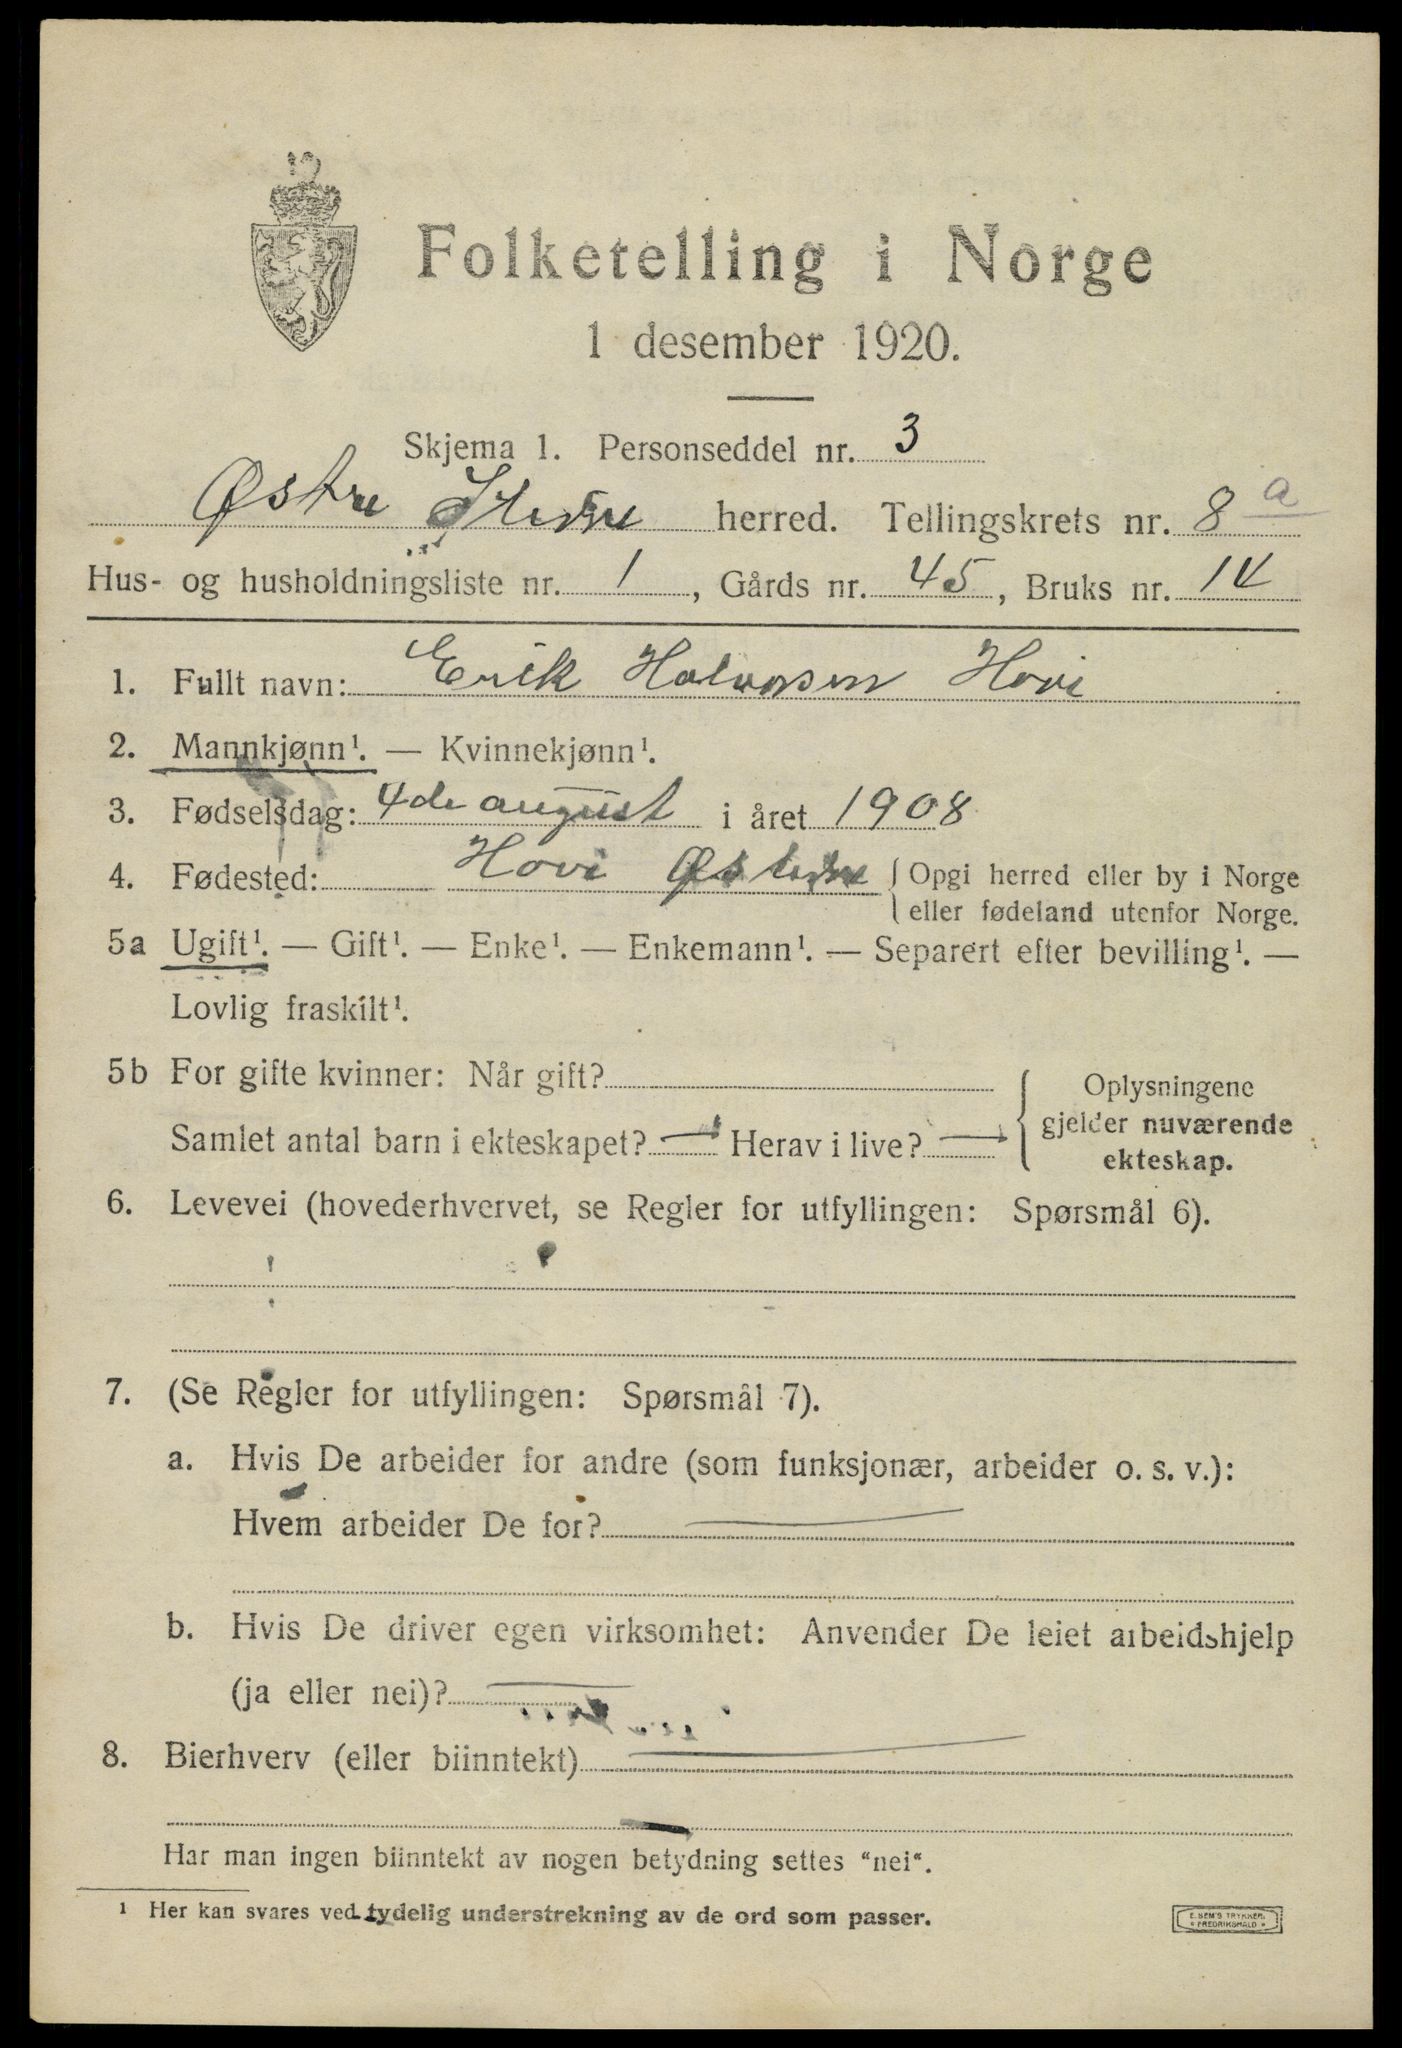 Folketelling i Norge
1 desember 1920.
Skjema 1. Personseddel nr. 3
Østre herred. Tellingskrets nr. 8 a
Hus- og husholdningsliste nr. 1, Gårds nr. 45, Bruks nr. 14
1. Fullt navn: Erik Halvorsen Hovi
2. Mannkjønn¹. — Kvinnekjønn¹.
3. Fødselsdag: 4de august i året 1908
4. Fødested: Hovi { Opgi herred eller by i Norge
eller fødeland utenfor Norge.
5a Ugift¹. — Gift¹. — Enke¹. — Enkemann¹. — Separert efter bevilling¹. —
Lovlig fraskilt¹.
5b For gifte kvinner: Når gift?
Samlet antal barn i ekteskapet? — Herav i live? — { Oplysningene
gjelder nuværende
ekteskap.
6. Levevei (hovederhvervet, se Regler for utfyllingen: Spørsmål 6).
7. (Se Regler for utfyllingen: Spørsmål 7).
a. Hvis De arbeider for andre (som funksjonær, arbeider o. s. v.):
Hvem arbeider De for? —
b. Hvis De driver egen virksomhet: Anvender De leiet arbeidshjelp
(ja eller nei)? —
8. Bierhverv (eller biinntekt) —
Har man ingen biinntekt av nogen betydning settes "nei".
¹ Her kan svares ved tydelig understrekning av de ord som passer.
E. SEM'S TRYKKERI
FREDRIKSHALD